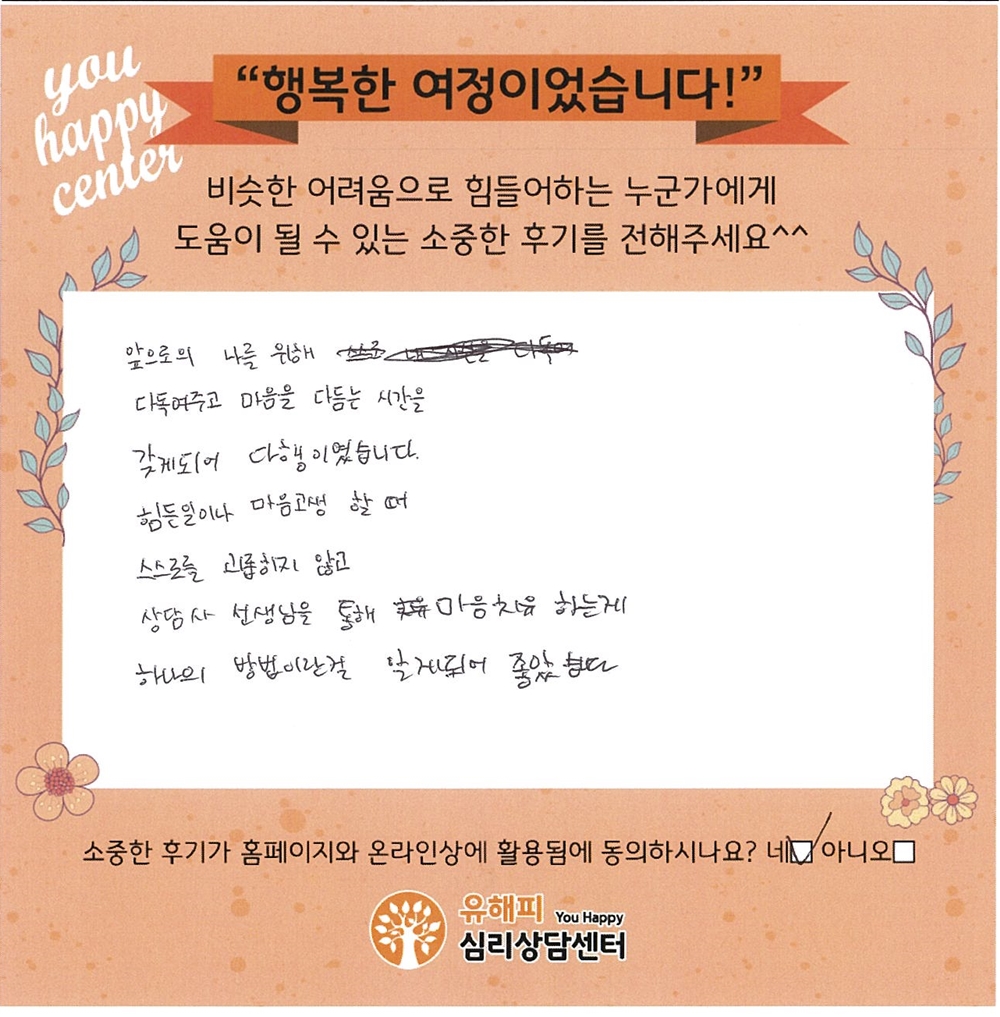 you
happy
center
“행복한 여정이었습니다!”
비슷한 어려움으로 힘들어하는 누군가에게
도움이 될 수 있는 소중한 후기를 전해주세요^^
앞으로의 나를 위해
다독여주고 마음을 다듬는 시간을
갖게되어 다행이였습니다.
힘든일이나 마음고생 할 때
스스로를 괴롭히지 않고
상담사 선생님을 통해 마음치유 하는게
하나의 방법이란걸 알게되어 좋았습니다
소중한 후기가 홈페이지와 온라인상에 활용됨에 동의하시나요? 네 아니오
유해피 You Happy
심리상담센터